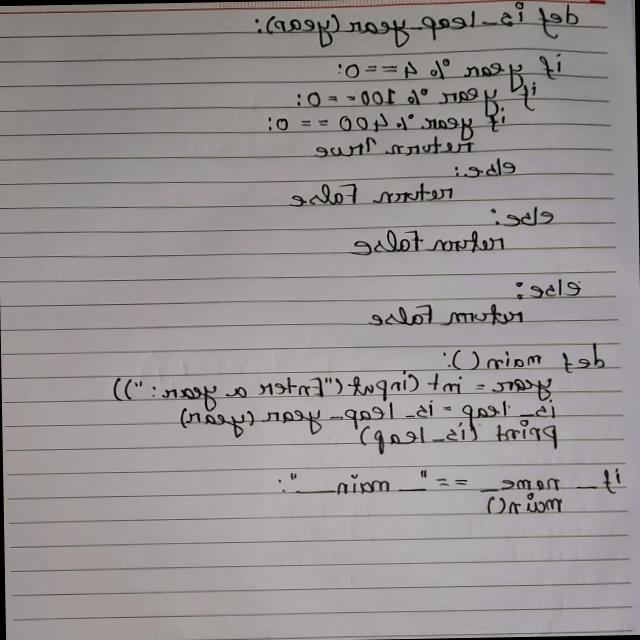 def is_leap_year (year):
if year % 4 == 0:
if year % 100 == 0:
if year % 400 == 0:
return True
else:
return False
else:
return False
else:
return False
def main ():
year = int (input ("Enter a year: "))
is_leap = is_leap_year (year)
print (is_leap)
if __name__ == "__main__":
main()